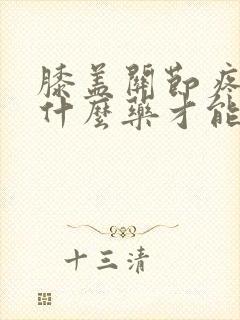 膝盖關節疼
什麼藥才能
十三清